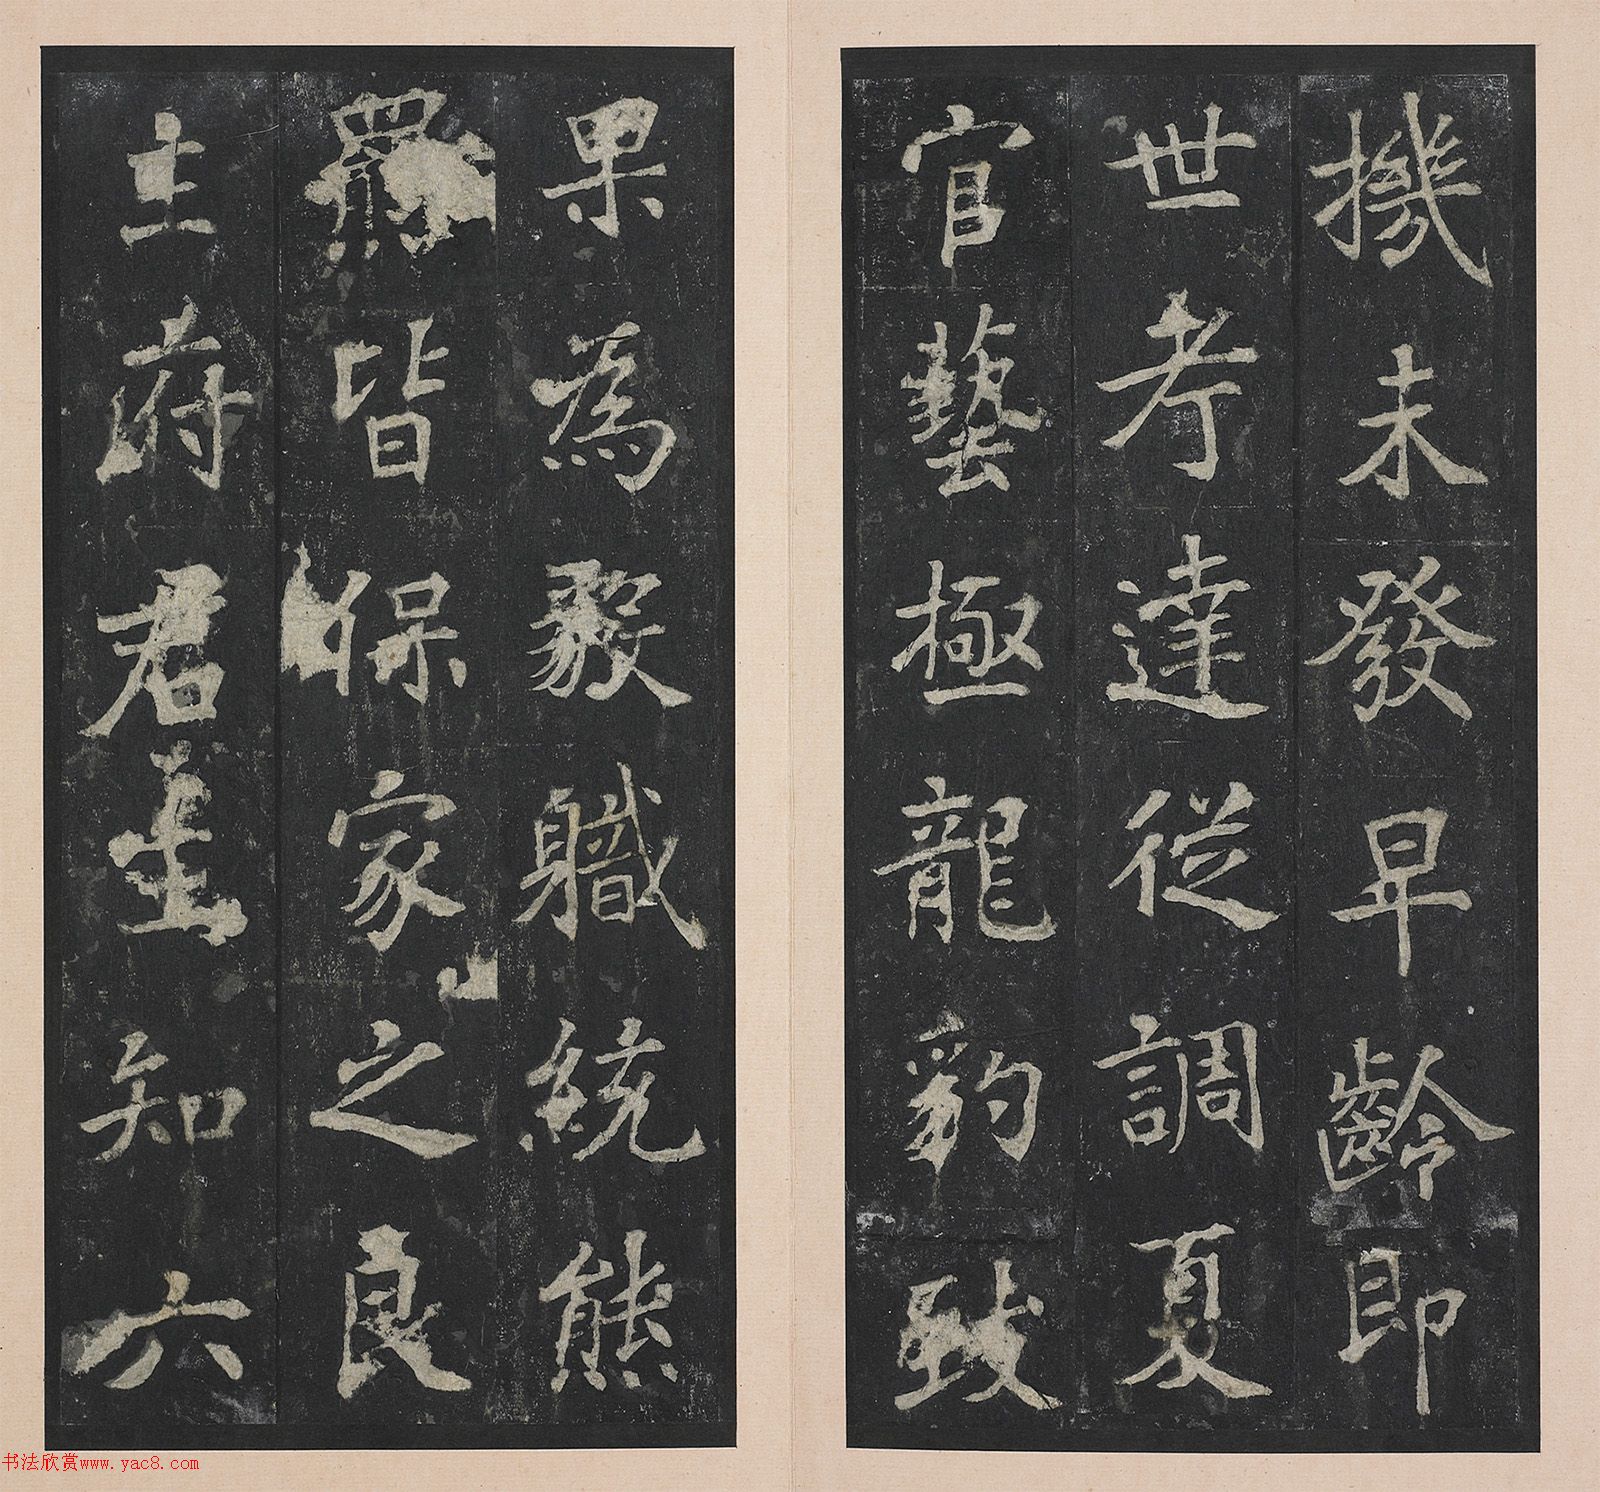 機未發早齡即
世考達從調夏
官藝極龍豹致
果為毅職統熊
羆皆保家之良
主府君生知六
书法欣赏www.yac8.com